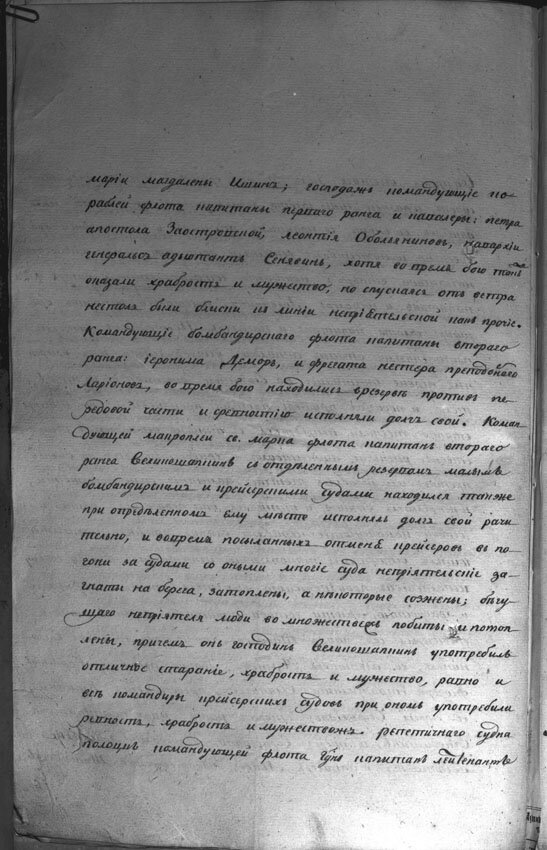 марiи магдалены Ишинъ; господажъ командующiе ко-
раблей флота капитаны перваго ранга и кавалеры: петра
апостола Заостровской, леонтiя Оболяниновъ, навархiи
генералсъ адъютантъ Сенявинъ, хотя во время бою тоже
оказали храбрость и мужество, но спускаяс отъ ветра
нестоль были блиски къ линiи непрiѣтельской какъ прочiе.
Командующiе бомбандирскаго флота капитаны втораго
ранга: iеронима Деморъ, и фрегата нестера преподобнаго
Ларiоновъ, во время бою находились врезерве противъ пе-
редовой части и срѣвностiю исполняли долгъ свой. Коман-
дующей макроплеи св. марка флота капитанъ втораго
ранга Великошапкинъ съ отдѣленнымъ резервомъ малымъ
бомбандирскимъ и крейсерскими судами находился также
при опредѣленномъ ему мѣсте исполнялъ долгъ свой рачи-
тельно, и вовремя посыланныхъ отменѣ крейсеровъ въ по-
гони за судами со оными многiе суда непрiятельскiе за-
гнаты на берега, затоплены, а нѣкоторые сожжены; бѣгу-
щаго непрiятеля люди во множествехъ побиты и потоп-
лены, причемъ онъ господинъ Великошапкинъ употребилъ
отличное старанiе, храбрость и мужество, равно и
всѣ командиры крейсерскихъ судовъ при ономъ употребили
ревность, храбрость и мужествожъ. репетичнаго судна
полоцкъ командующей флота Гднъ капитанъ лейтенантъ